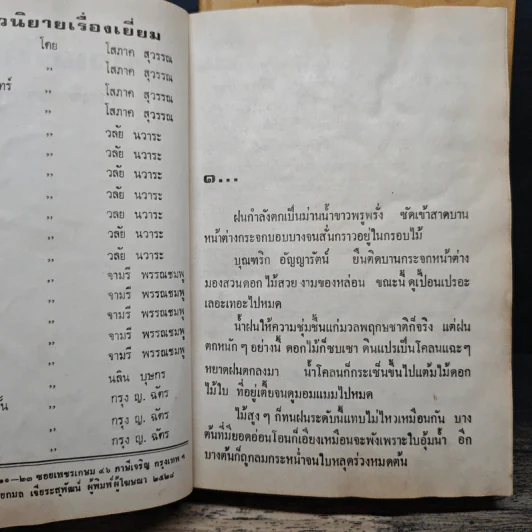 วนิยายเรื่องเยี่ยม
โดย โสภาค สุวรรณ
,, โสภาค สุวรรณ
ทร์ ,, โสภาค สุวรรณ
,, โสภาค สุวรรณ
,, วลัย นวาระ
,, วลัย นวาระ
,, วลัย นวาระ
,, วลัย นวาระ
,, วลัย นวาระ
,, วลัย นวาระ
,, วลัย นวาระ
,, จามรี พรรณชมพู
,, จามรี พรรณชมพู
,, จามรี พรรณชมพู
,, จามรี พรรณชมพู
,, จามรี พรรณชมพู
,, นลิน บุษกร
,, กรุง ญ. ฉัตร
,, กรุง ญ. ฉัตร
,, กรุง ญ. ฉัตร
๑-๒๓ ซอยเพชรเกษม ๔๖ ภาษีเจริญ กรุงเทพ ฯ
ยกมล เจียระสุพัฒน์ ผู้พิมพ์ผู้โฆษณา ๒๕๒๘
๑...
ฝนกำลังตกเป็นม่านน้ำขาวพรูพรั่ง ซัดเข้าสาดบาน
หน้าต่างกระจกบอบบางจนสั่นกราวอยู่ในกรอบไม้
บุณฑริก อัญญารัตน์ ยืนติดบานกระจกหน้าต่าง
มองสวนดอกไม้สวย งามของหล่อน ขณะนี้ ดูเปื้อนเปรอะ
เลอะเทอะไปหมด
น้ำฝนให้ความชุ่มชื้นแก่มวลพฤกษชาติก็จริง แต่ฝน
ตกหนักๆ อย่างนี้ ดอกไม้ก็ซบเซา ดินแปรเป็นโคลนแฉะๆ
หยาดฝนตกลงมา น้ำโคลนก็กระเซ็นขึ้นไปแต้มไม้ดอก
ไม้ใบ ที่อยู่เตี้ยจนดูมอมแมมไปหมด
ไม้สูงๆ ก็ทนฝนระดับนี้แทบไม่ไหวเหมือนกัน บาง
ต้นที่มียอดอ่อนโอนก็เอียงเหมือนจะพังเพราะใบอุ้มน้ำ อีก
บางต้นก็ถูกลมกระหน่ำจนใบหลุดร่วงหมดต้น